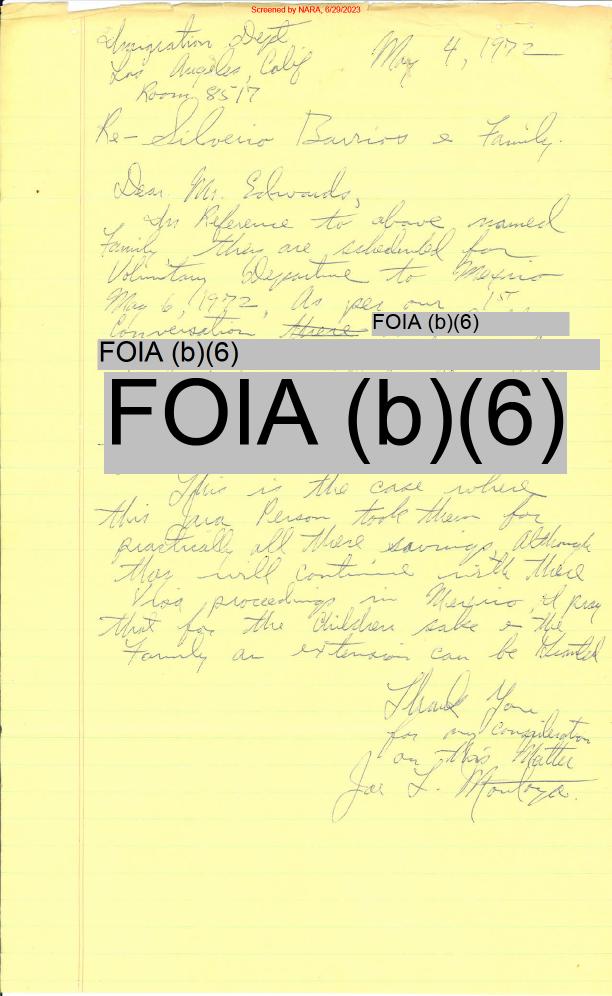 Screened by NARA, 6/29/2023
Imigration Dept
Los Angeles, Calif
Room 8517
May 4, 1972
Re- Silverio Barrios e Family.
Dear Mr. Edwards,
In Reference to above named
Family they are scheduled for
Voluntary Departure to Mexico
May 6, 1972, As per our 1st
Conversation there FOIA (b)(6)
FOIA (b)(6)
FOIA (b)(6)
This is the case where
this Person took them for
practically all there savings, Although
they will continue with there
Visa proceedings in Mexico, I pray
that for the Children sake e the
Family an extension can be Granted
Thank You
for any consideration
on this Matter
Joe L. Montoya.